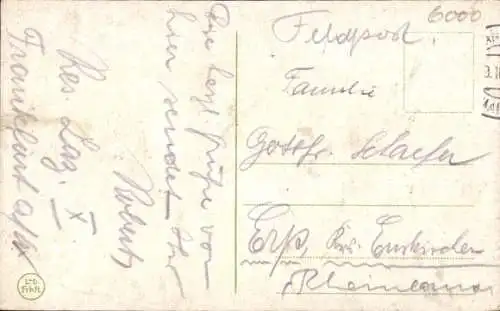 Die herzl. Grüße von
hier sendet Ihr
Robert
Res. Laz. X
Frankfurt a/M
6000
Feldpost
Familie
Gottfr. Schaefer
Erp Krs. Euskirchen
Rheinland